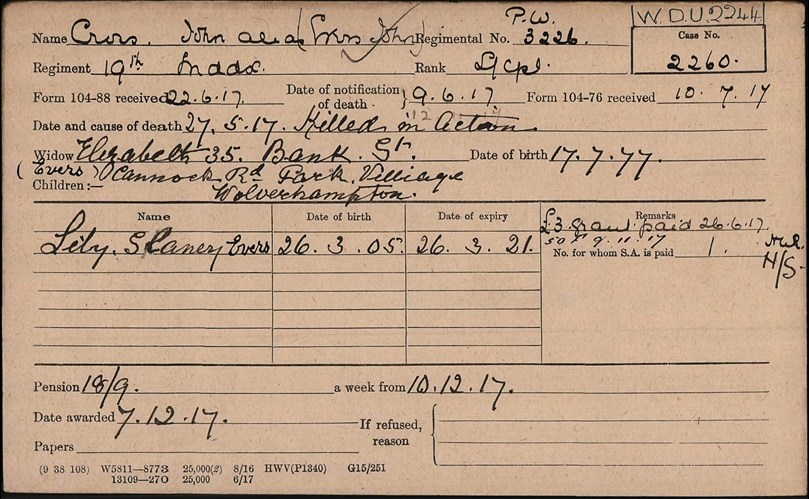 W.D.U.2244
Name Crvis. John alias (Evers John) Regimental No. P.W. 3226.
Case No.
2260.
Regiment 19th Middx. Rank L/Cpl.
Form 104-88 received 22.6.17. Date of notification of death. } 9.6.17 Form 104-76 received 10.7.17
Date and cause of death 27.5.17. Killed in Action
Widow Elizabeth 35. Bank. St. Date of birth 17.7.77.
(Evers) Cannock Rd Park Villiage
Children:— Wolverhampton.
Name Date of birth Date of expiry Remarks
£3 grant paid 26.6.17
Lily. Slaney Evers 26.3.05. 26.3.21.
9.11.17
No. for whom S.A. is paid 1.
H/S.
Pension 18/9. a week from 10.12.17.
Date awarded 7.12.17.
If refused, reason
Papers
(9 38 108) W5811—8773 25,000(2) 8/16 HWV(P1340) G15/251
13109—270 25,000 6/17